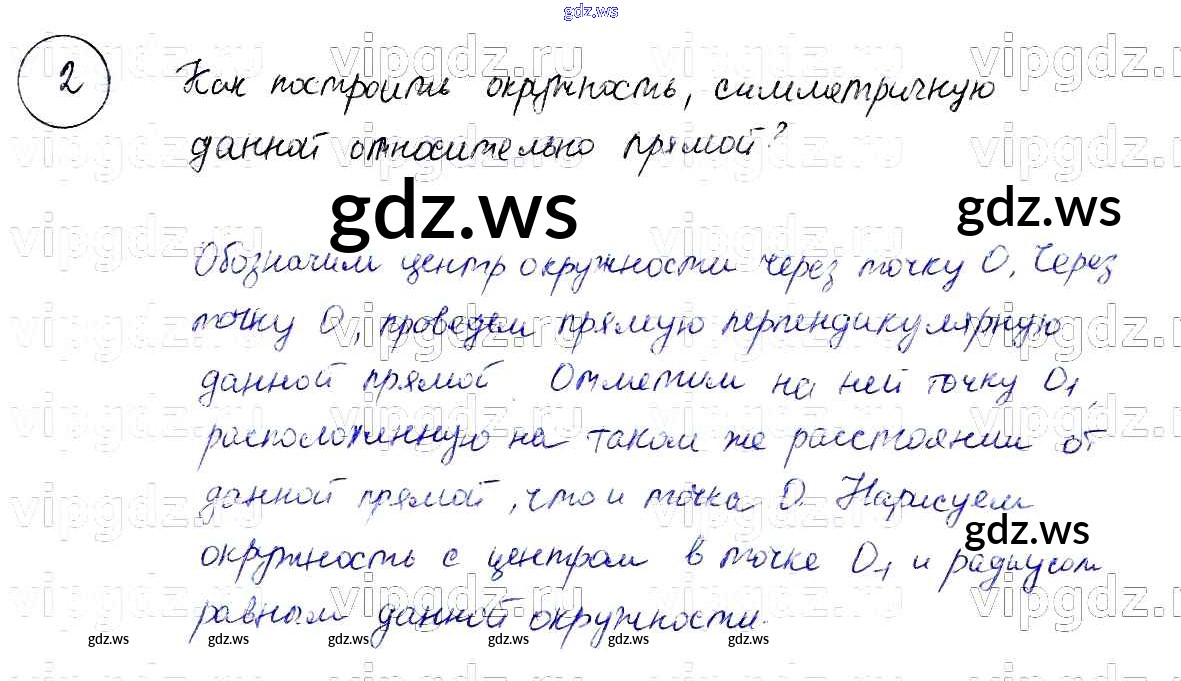 gdz.ws
2 Как построить окружность, симметричную
данной относительно прямой?
gdz.ws gdz.ws
Обозначим центр окружности через точку О. Через
точку О, проведем прямую перпендикулярную
данной прямой. Отметим на ней точку О1,
расположенную на таком же расстоянии от
данной прямой, что и точка О. Нарисуем
gdz.ws
окружность с центром в точке О1 и радиусом
равным данной окружности.
gdz.ws gdz.ws gdz.ws gdz.ws gdz.ws gdz.ws
vipgdz.ru